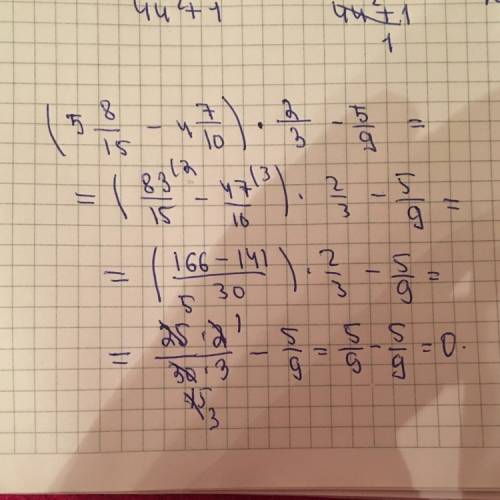 4u²+1 4u²+1
1
(5 8/15 - 4 7/10) · 2/3 - 5/9 =
= (83⁽²/15 - 47⁽³/10) · 2/3 - 5/9 =
= (166-141/30) · 2/3 - 5/9 =
5 1
= 25·2/30·3 - 5/9 = 5/9 - 5/9 = 0.
15
3